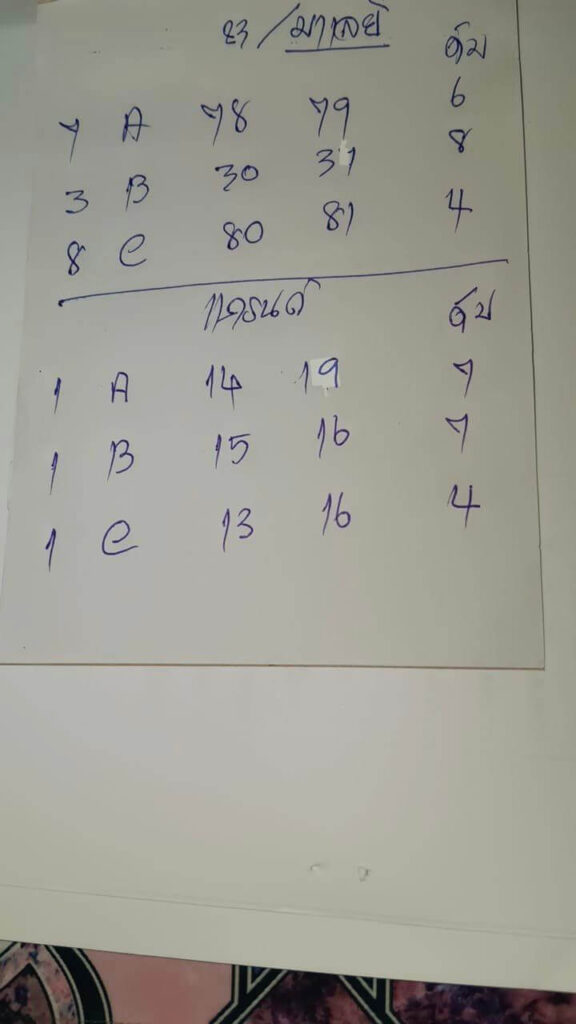 23 / มาเลย์ ดับ
7 A 78 79 6
3 B 30 31 8
8 C 80 81 4
แกรนด์ ดับ
1 A 14 19 7
1 B 15 16 7
1 C 13 16 4